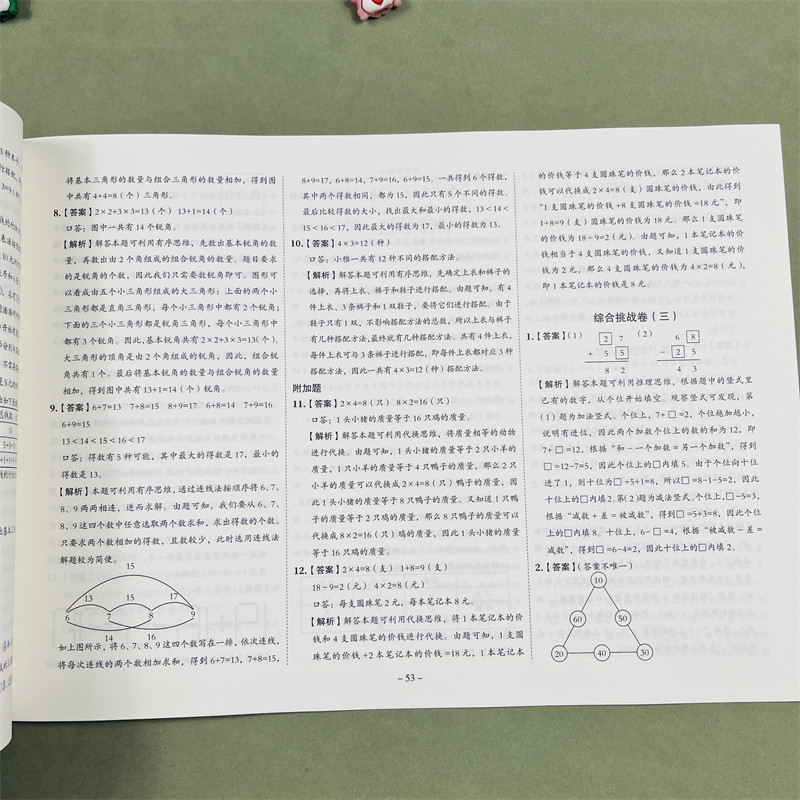 将基本三角形的数量与组合三角形的数量相加，得到图
中共有4+4=8（个）三角形。
8.【答案】2×2+3×3=13（个） 13+1=14（个）
口答：图中一共有14个锐角。
【解析】解答本题可利用有序思维，先数出基本锐角的数
量，再数出由2个角组成的组合锐角的数量。题目要求
的是锐角的个数，因此我们只需要数锐角即可。图形可
以看成由五个小三角形组成的大三角形；上面的两个小
三角形都是直角三角形，每个小三角形中都有2个锐角；
下面的三个小三角形都是锐角三角形，每个小三角形中
都有3个锐角。因此，基本锐角共有2×2+3×3=13（个）。
大三角形的顶角是由2个角组成的锐角，因此，组合锐
角共有1个。最后将基本锐角的数量与组合锐角的数量
相加，得到图中共有13+1=14（个）锐角。
9.【答案】6+7=13 7+8=15 8+9=17 6+8=14 7+9=16
6+9=15
13＜14＜15＜16＜17
口答：得数有5种可能，其中最大的得数是17，最小的
得数是13。
【解析】本题可利用有序思维，通过连线法按顺序将6、7、
8、9两两相连，进而求解。由题可知，我们要从6、7、
8、9这四个数中任意选取两个数求和，求出得数的个数。
只要求两个数相加的得数，且数较少，此时选用连线法
解题较为简便。
15
13 15 17
6 7 8 9
14 16
如上图所示，将6、7、8、9这四个数写在一排，依次连线，
将每次连线的两个数相加求和，得到6+7=13，7+8=15，
8+9=17，6+8=14，7+9=16，6+9=15。一共得到6个得数，
其中两个得数相同，都为15，因此只有5个不同的得数。
最后比较得数的大小，找出最大和最小的得数，13＜14＜
15＜16＜17，因此最大的得数为17，最小的得数为13。
10.【答案】4×3=12（种）
口答：小雅一共有12种不同的搭配方法。
【解析】解答本题可利用有序思维，先确定上衣和裤子的
选择，再将上衣、裤子和鞋子进行搭配。由题可知，有4
件上衣、3条裤子和1双鞋子，要将它们进行搭配。由于
鞋子只有1双，不影响搭配方法的总数，所以上衣与裤子
有几种搭配方法，最终就有几种搭配方法。共有4件上衣，
每件上衣可与3条裤子进行搭配，即每件上衣都对应3种
搭配方法，因此一共有4×3=12（种）搭配方法。
附加题
11.【答案】2×4=8（只） 8×2=16（只）
口答：1头小猪的质量等于16只鸡的质量。
【解析】解答本题可利用代换思维，将质量相等的动物
进行代换。由题可知，1头小猪的质量等于2只小羊的
质量，1只小羊的质量等于4只鸭子的质量，那么2只
小羊的质量可以代换成2×4=8（只）鸭子的质量，因
此1头小猪的质量等于8只鸭子的质量。又知道1只鸭
子的质量等于2只鸡的质量，那么8只鸭子的质量可以
代换成8×2=16（只）鸡的质量，因此1头小猪的质量
等于16只鸡的质量。
12.【答案】2×4=8（支） 1+8=9（支）
18－9=2（元） 4×2=8（元）
口答：每支圆珠笔2元，每本笔记本8元。
【解析】解答本题可利用代换思维，将1本笔记本的价
钱和4支圆珠笔的价钱进行代换。由题可知，1支圆
珠笔的价钱+2本笔记本的价钱=18元，1本笔记本
的价钱等于4支圆珠笔的价钱，那么2本笔记本的价
钱可以代换成2×4=8（支）圆珠笔的价钱，由此得到
“1支圆珠笔的价钱+8支圆珠笔的价钱=18元”，即
1+8=9（支）圆珠笔的价钱为18元。那么1支圆珠笔
的价钱为18－9=2（元）。由题可知，1本笔记本的价
钱相当于4支圆珠笔的价钱，又知道1支圆珠笔的价
钱为2元，那么4支圆珠笔的价钱为4×2=8（元），
即1本笔记本的价钱是8元。
综合挑战卷（三）
1.【答案】（1） （2）
2 7 6 8
+ 5 5 － 2 5
8 2 4 3
【解析】解答本题可利用推理思维，根据题中的竖式里
已有的数字，从个位开始填空。观察竖式可发现，第
（1）题为加法竖式。个位上，7+□=2，个位越加越小，
说明有进位，因此两个加数个位上的数的和为12，即
7+□=12，根据“和－一个加数=另一个加数”，得到
□=12-7=5，因此个位上的□内填5。由于个位向十位
进了1，则十位为□+5+1=8，所以□=8-1-5=2，因此
十位上的□内填2。第（2）题为减法竖式。个位上，□-5=3，
根据“减数+差=被减数”，得到□=5+3=8，因此个位
上的□内填8。十位上，6-□=4，根据“被减数－差=
减数”，得到□=6-4=2，因此十位上的□内填2。
2.【答案】（答案不唯一）
10
60 50
20 40 30
- 53 -